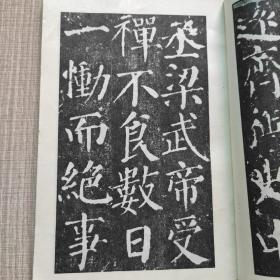 齊
丞梁武帝受
禪不食數日
一慟而絕事